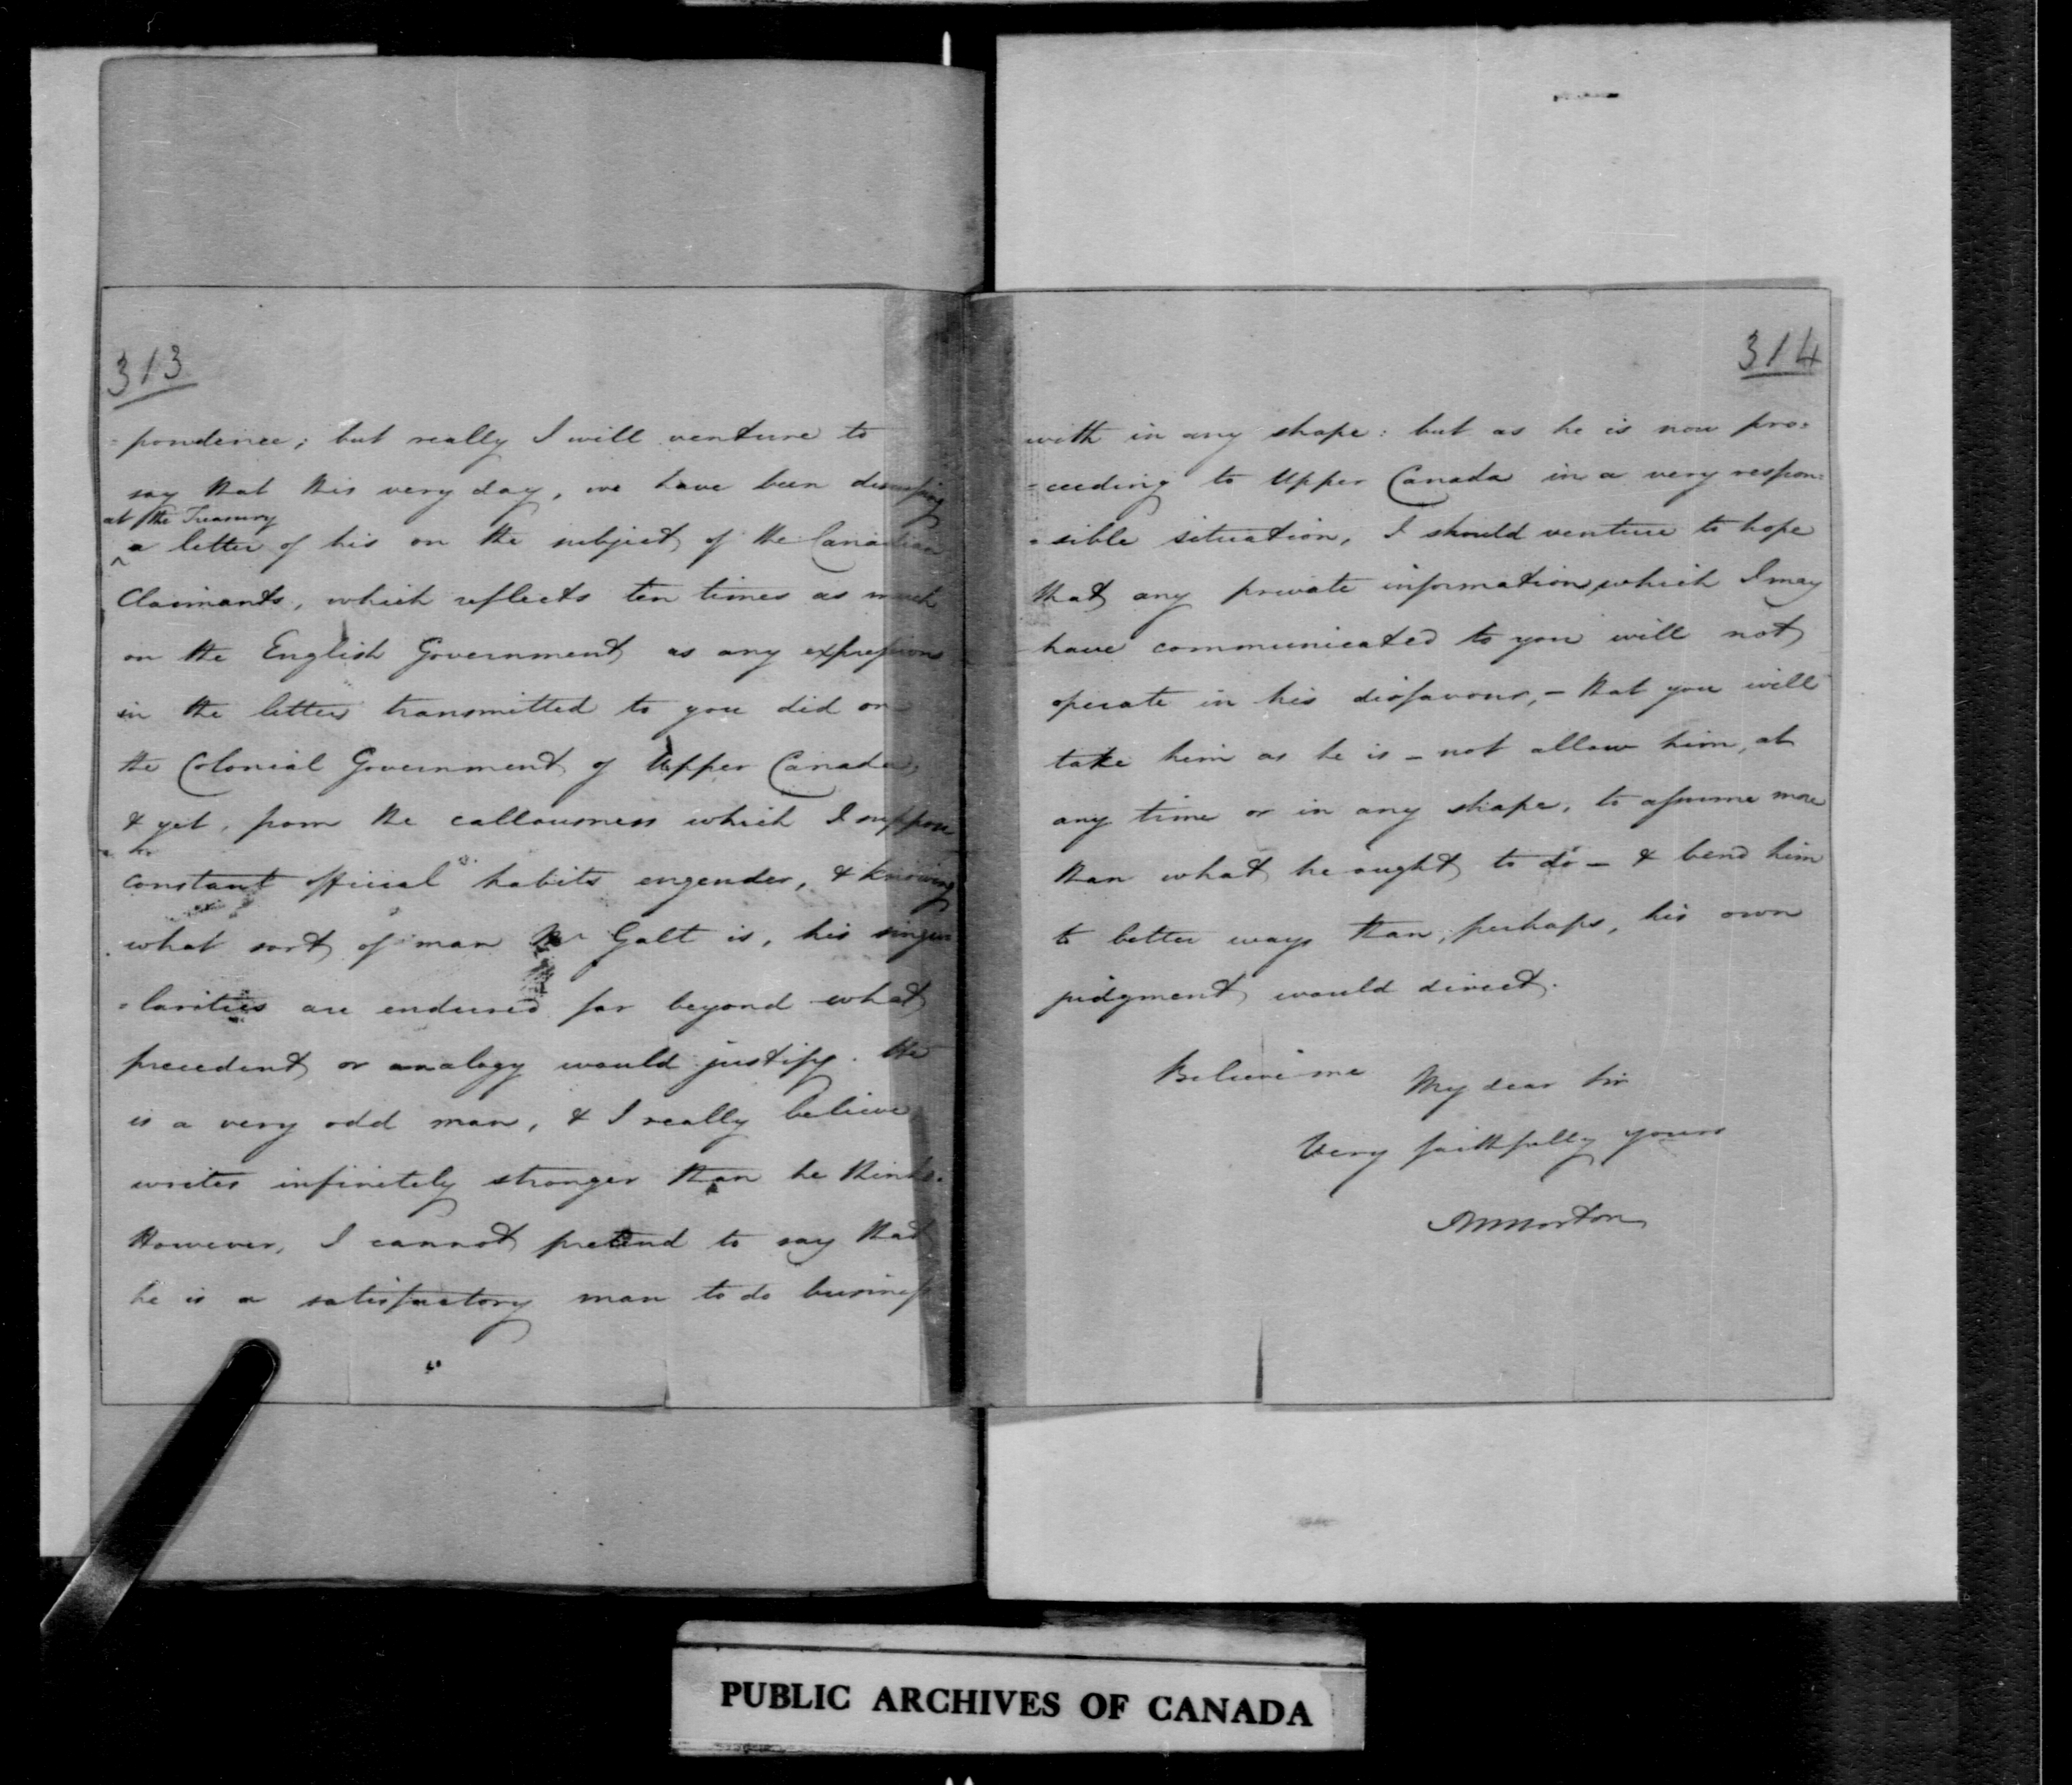 313
=pondence; but really I will venture to
say that this very day, we have been discussing
at the Treasury
^a letter of his on the subject of the Canadian
Claimants, which reflects ten times as much
on the English Government as any expressions
in the letter transmitted to you did on
the Colonial Government of Upper Canada,
& yet, from the callousness which I suppose
constant official habits engender, & knowing
what sort of man Mr Galt is, his singu
=larities are endured far beyond what
precedent or analogy would justify. He
is a very odd man, & I really believe
writes infinitely stronger than he thinks.
However, I cannot pretend to say that
he is a satisfactory man to do business
314
with in any shape: but as he is now pro=
=ceeding to Upper Canada in a very respon=
=sible situation, I should venture to hope
that any private information, which I may
have communicated to you will not
operate in his disfavour, – that you will
take him as he is – not allow him, at
any time or in any shape, to assume more
than what he ought to do – & bend him
to better ways than, perhaps, his own
judgment would direct.
Believe me My dear Sir
Very faithfully yours
PUBLIC ARCHIVES OF CANADA